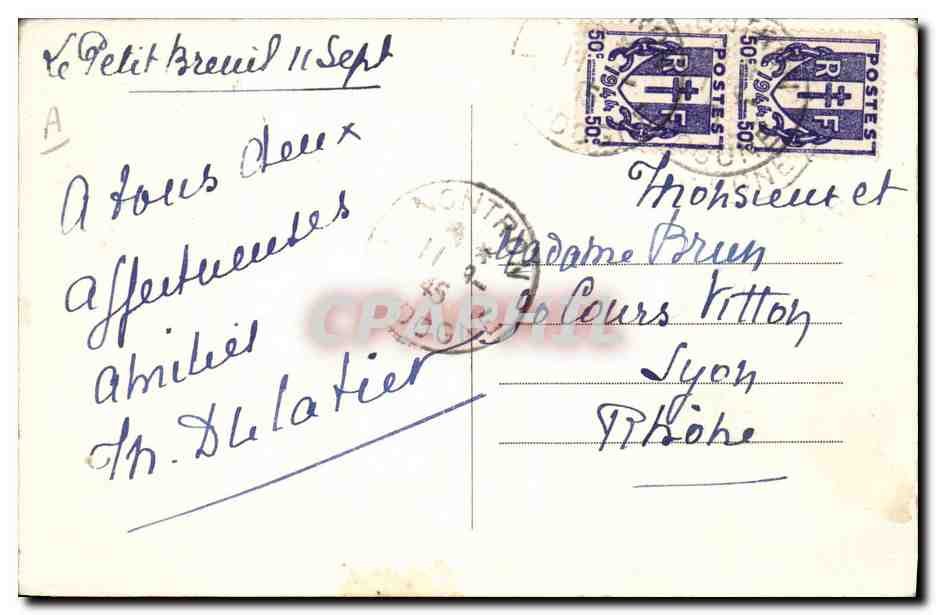 Le Petit Breuil 11 Sept
A
A tous deux
affectueuses
amitiés
Th. Delatier
50c POSTES RF 1944 50c
50c POSTES RF 1944 50c
MONTRON
11 9
45
DOG
CPARAMA
Monsieur et
Madame Brun
90 Cours Vitton
Lyon
Rhône